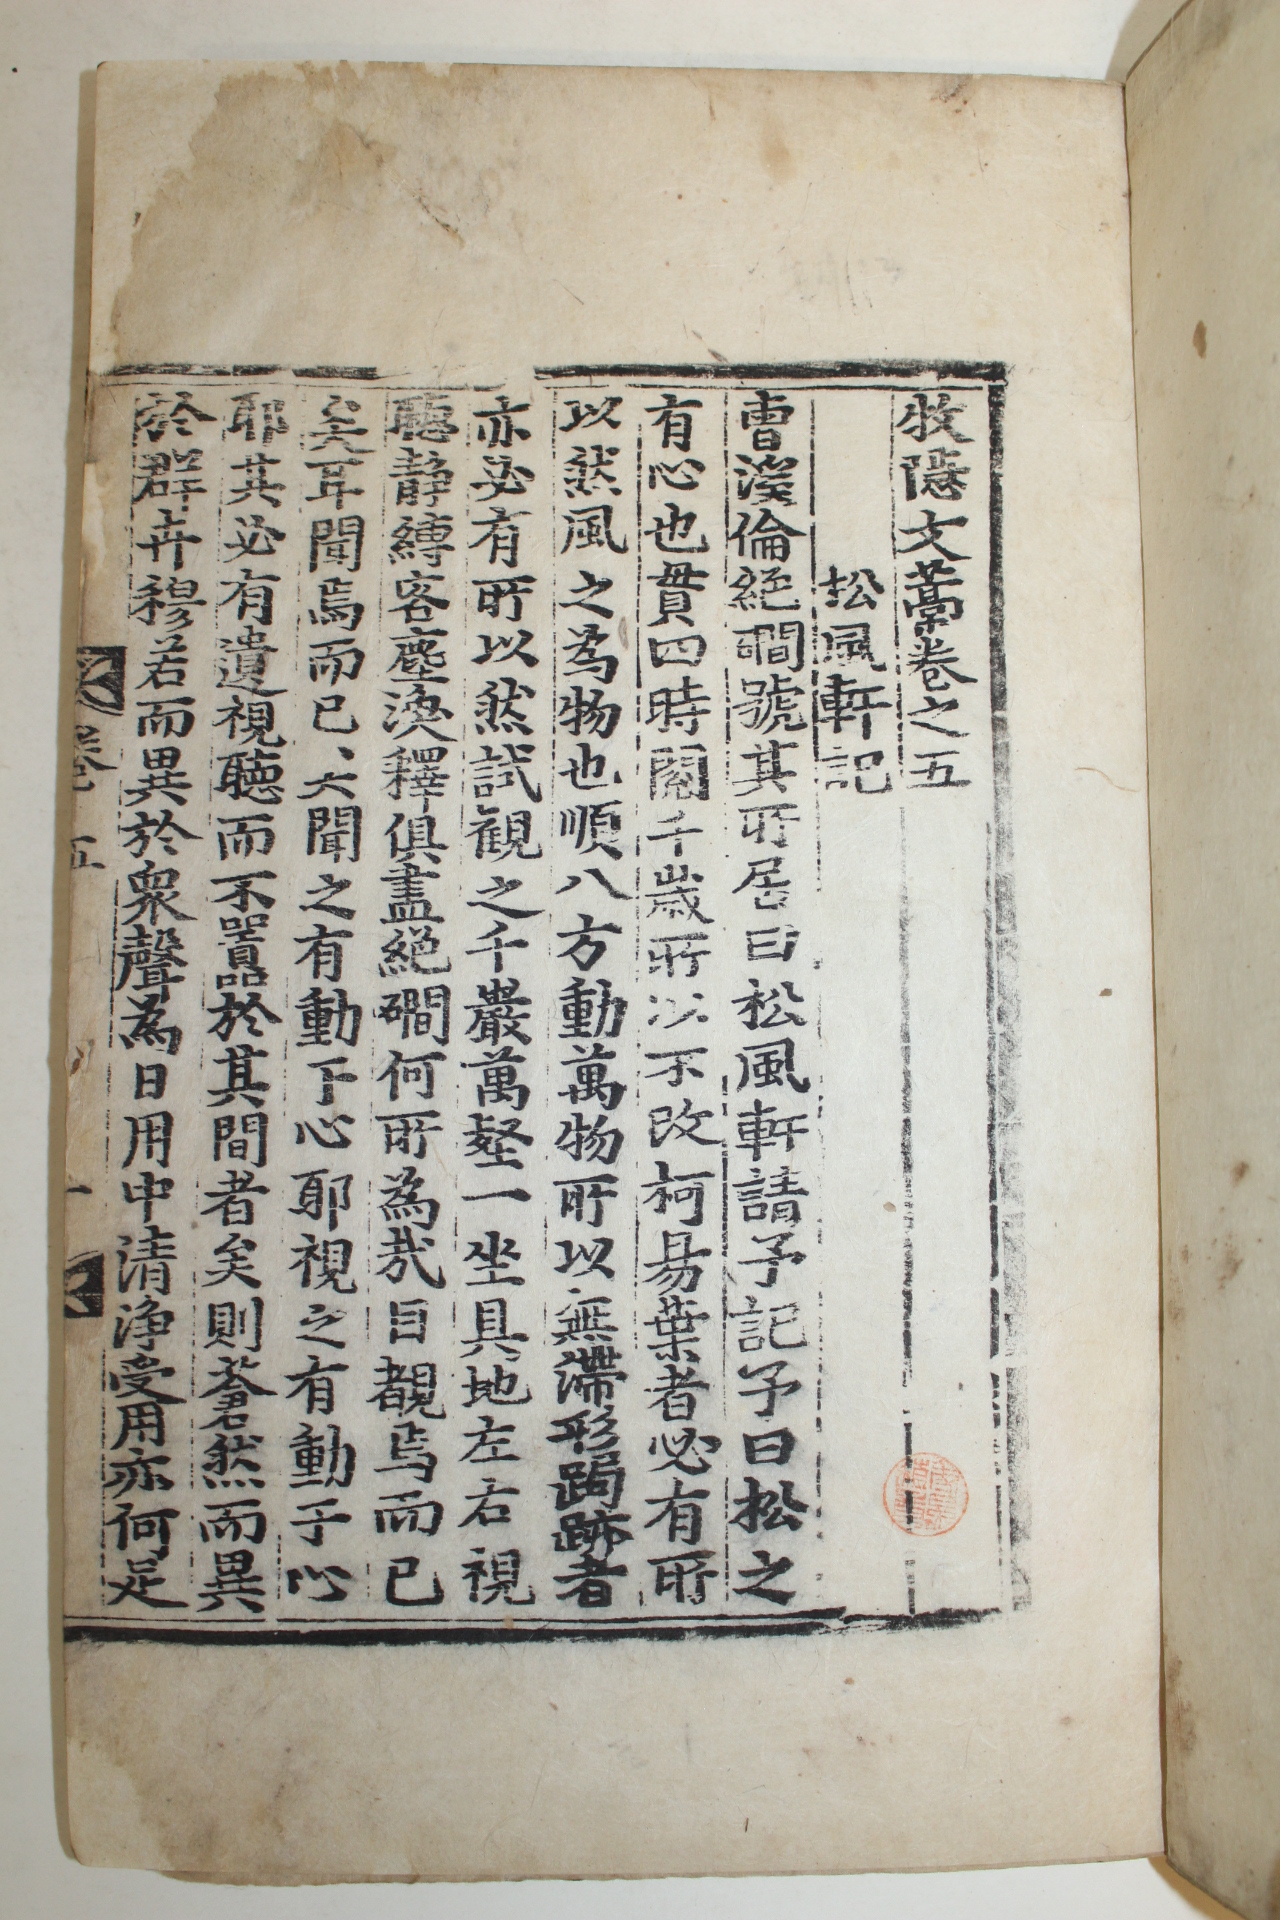 牧隱文藁卷之五
松風軒記
曹溪倫絕磵號其所居曰松風軒請予記予曰松之
有心也貫四時閱千歲所以不改柯易葉者必有所
以然風之爲物也順八方動萬物所以無滯形跼跡者
亦必有所以然試觀之千巖萬壑一坐具地左右視
聽靜縛客塵渙釋俱盡絕磵何所爲哉目覩焉而已
矣耳聞焉而已矣聞之有動于心耶視之有動于心
耶其必有遺視聽而不囂於其間者矣則蒼然而異
於群卉穆若而異於衆聲爲日用中淸淨受用亦何足
卷五
一